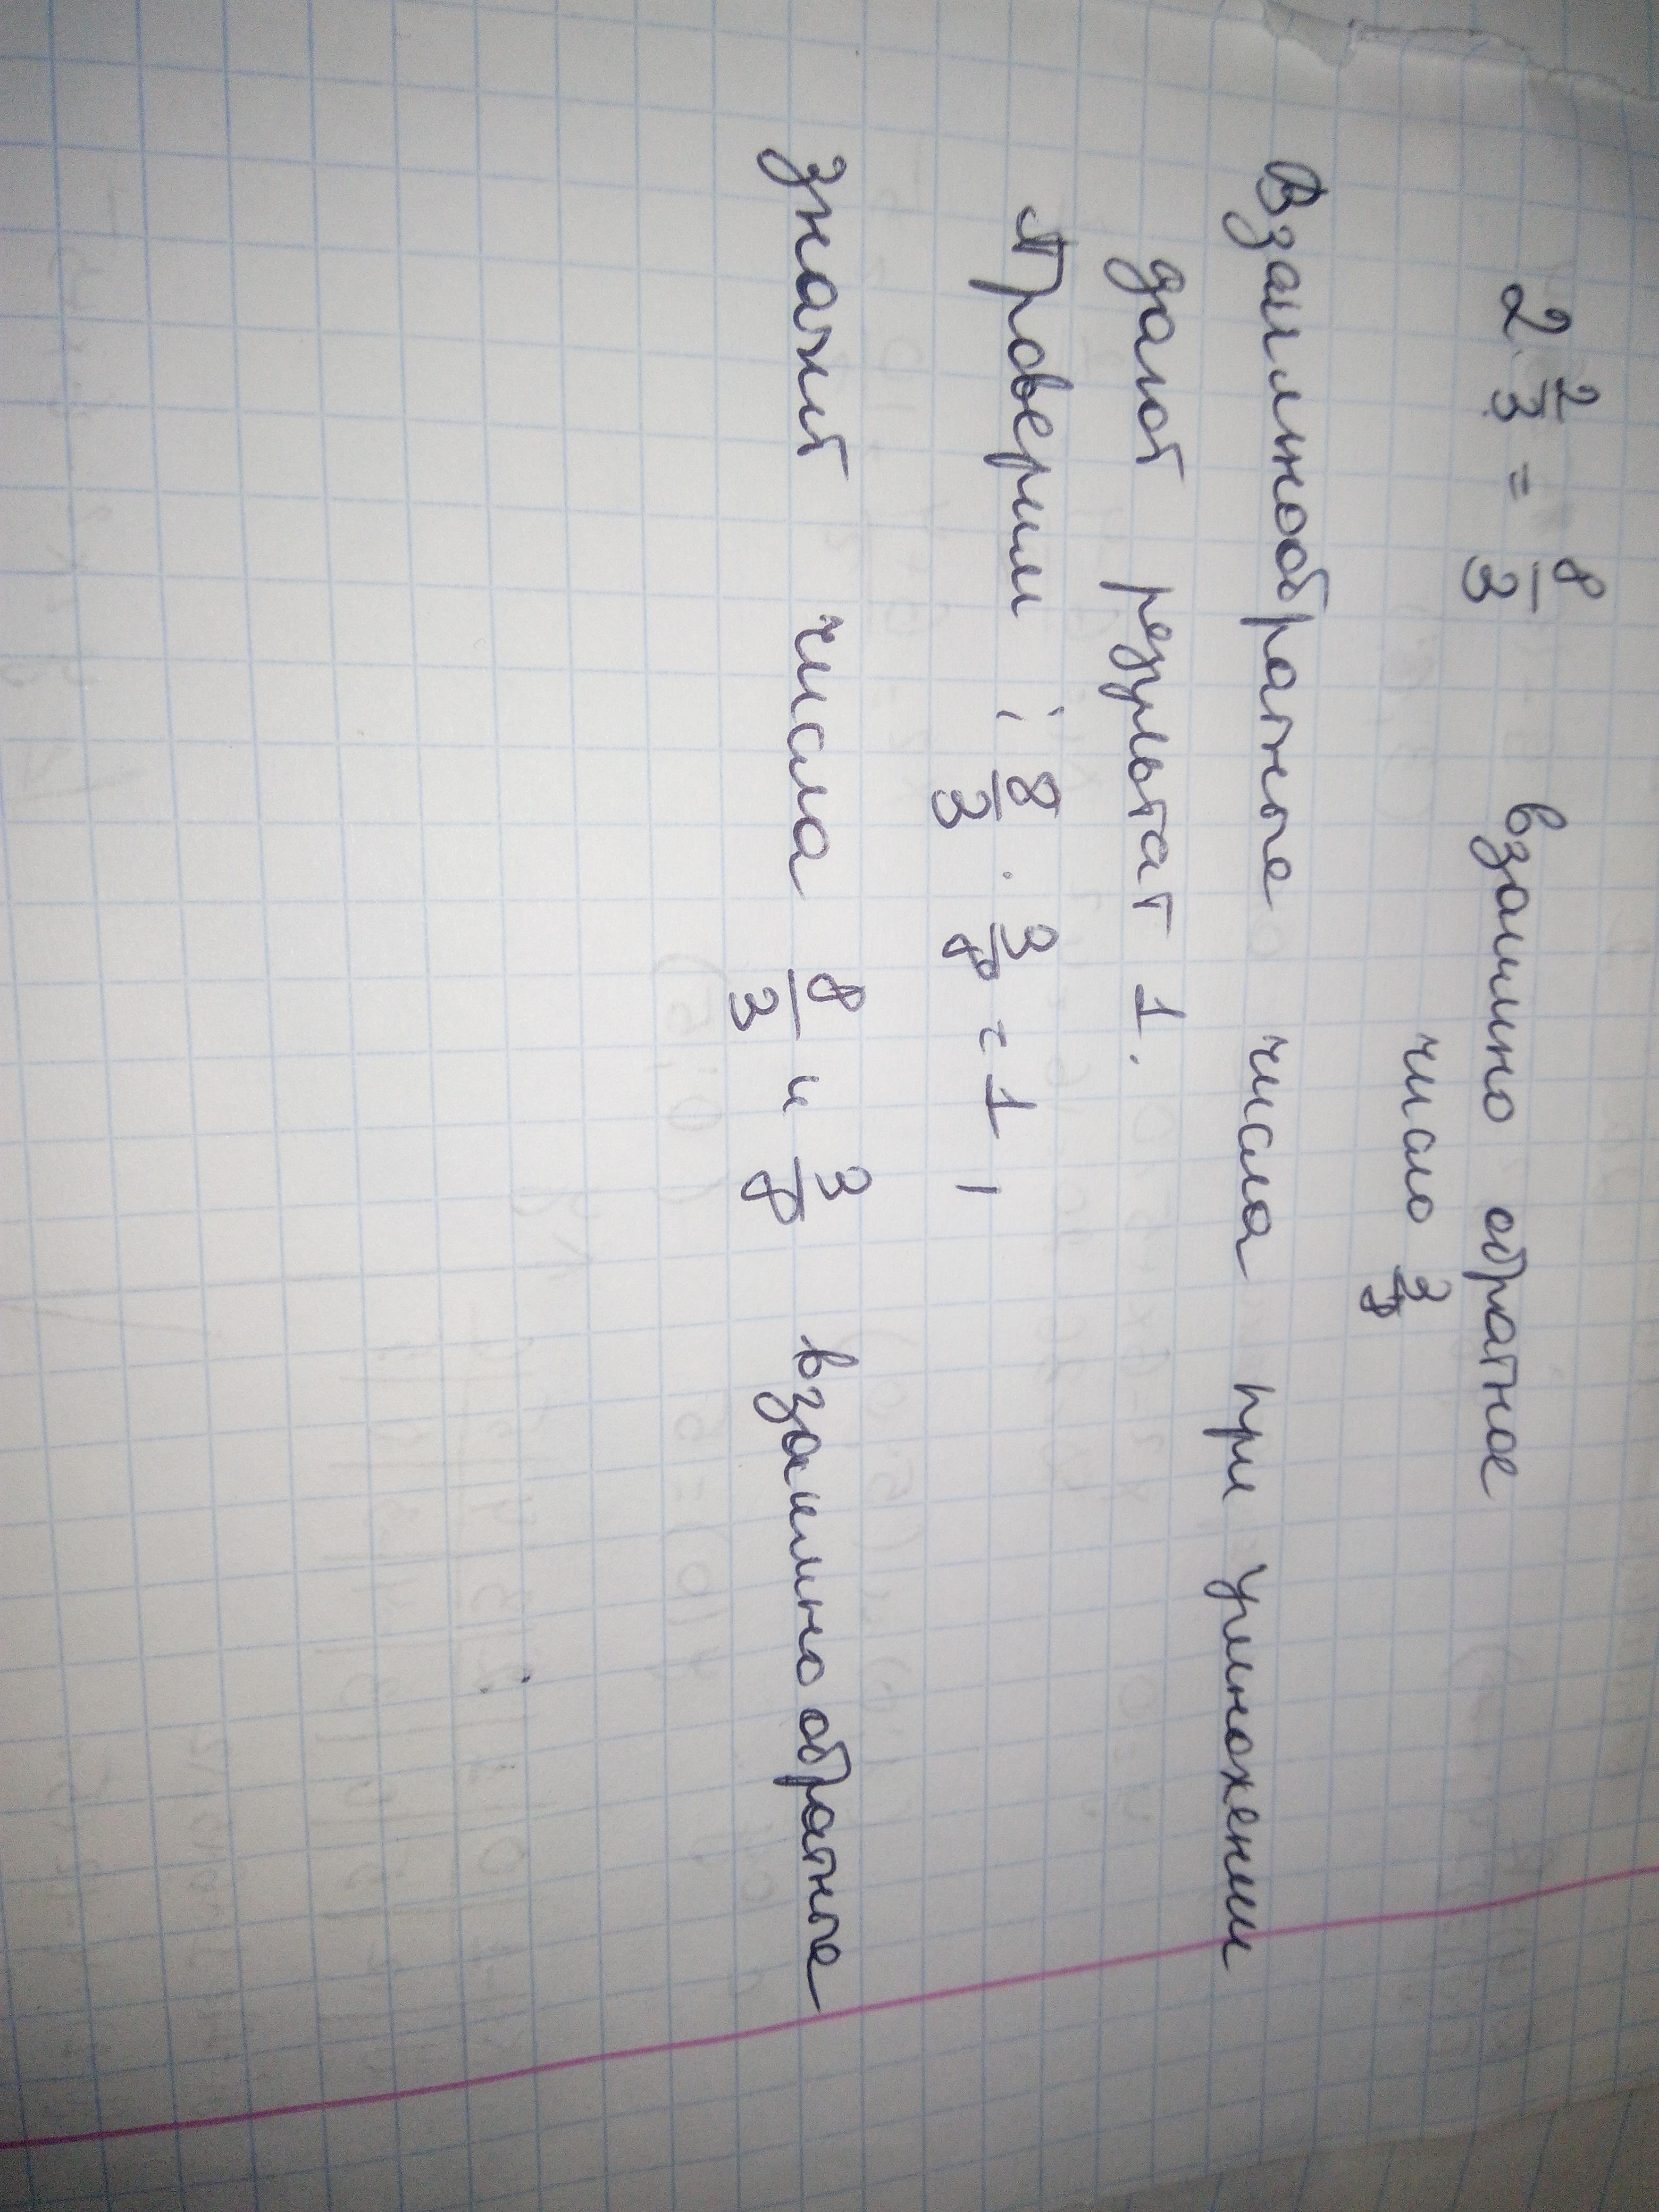 2 2/3 = 8/3 взаимно обратное
число 3/8
Взаимнообратные числа при умножении
дают результат 1.
Проверим: 8/3 · 3/8 = 1,
значит числа 8/3 и 3/8 взаимнообратные